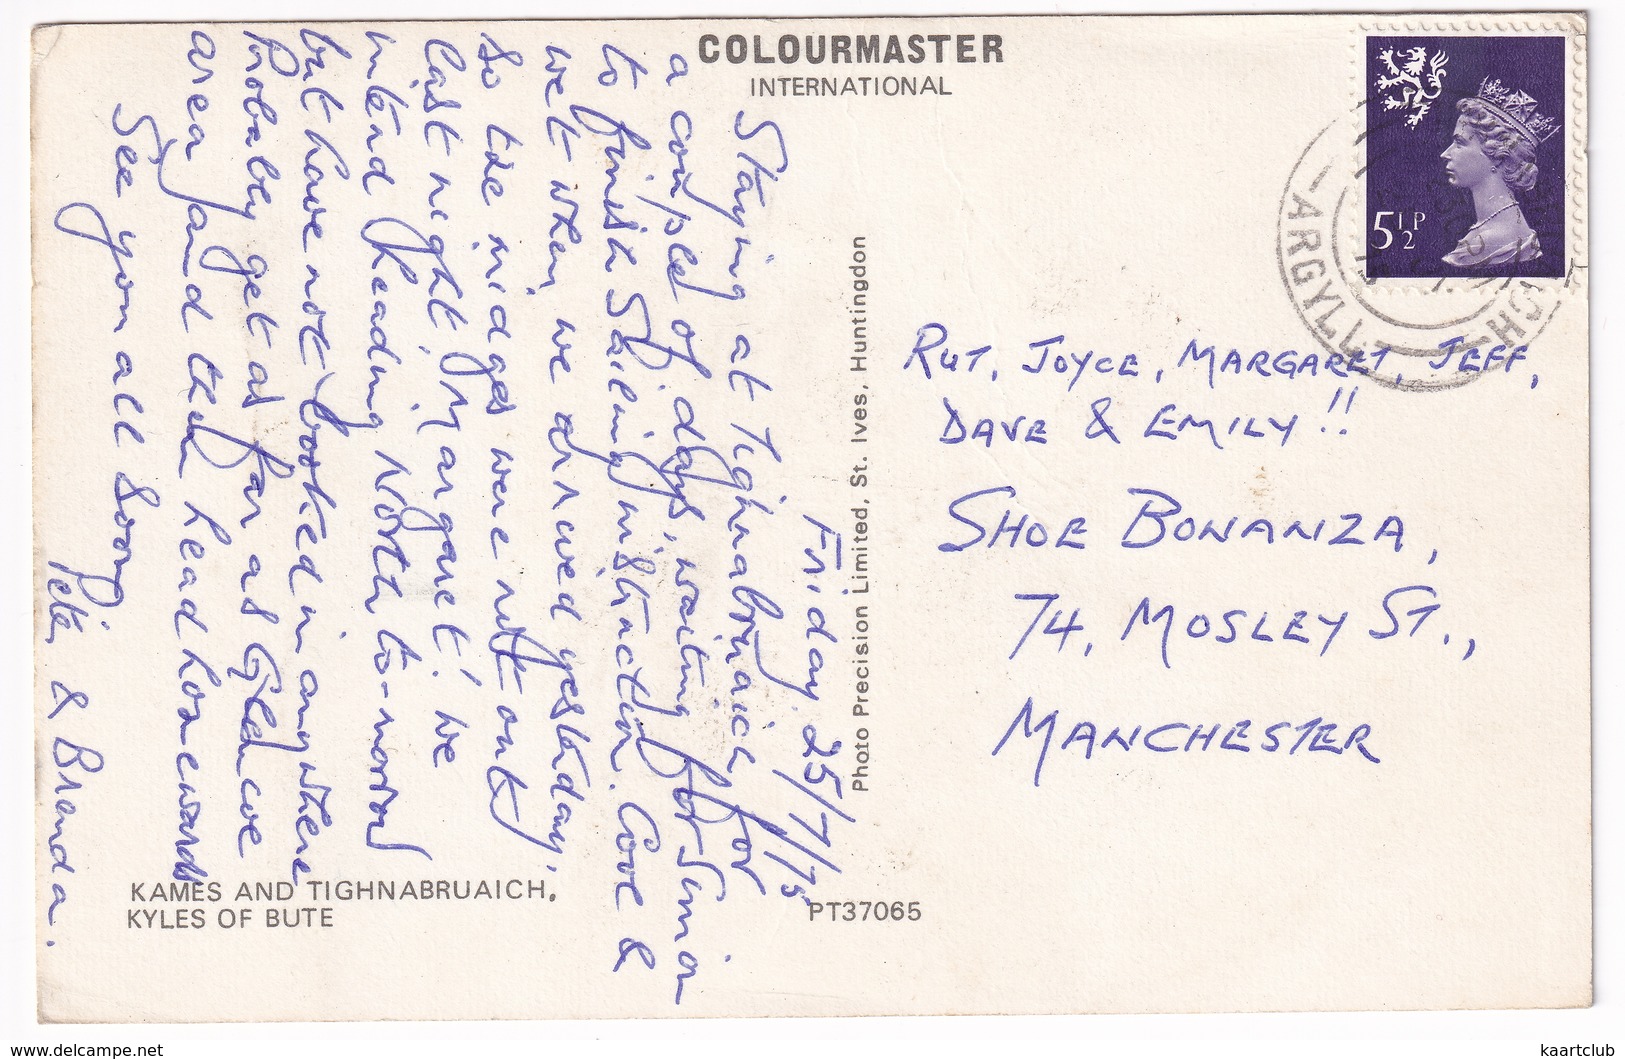 COLOURMASTER
INTERNATIONAL
Friday 25/7/75
Staying at Tighnabruaich for
a couple of days, waiting for Simon
to finish Sailing instruction. Cool &
wet when we arrived yesterday,
so the midges were not out
last night, Margaret! We
intend heading North to-morrow
but have not booked in anywhere
Probably get as far as Glencoe
area and then head homewards
See you all soon,
Peter & Brenda.
KAMES AND TIGHNABRUAICH,
KYLES OF BUTE
PT37065
Photo Precision Limited, St. Ives, Huntingdon
5½P
ARGYLL
RUT, JOYCE, MARGARET, JEFF,
DAVE & EMILY!!
SHOE BONANZA,
74, MOSLEY ST.,
MANCHESTER
www.delcampe.net
kaartclub